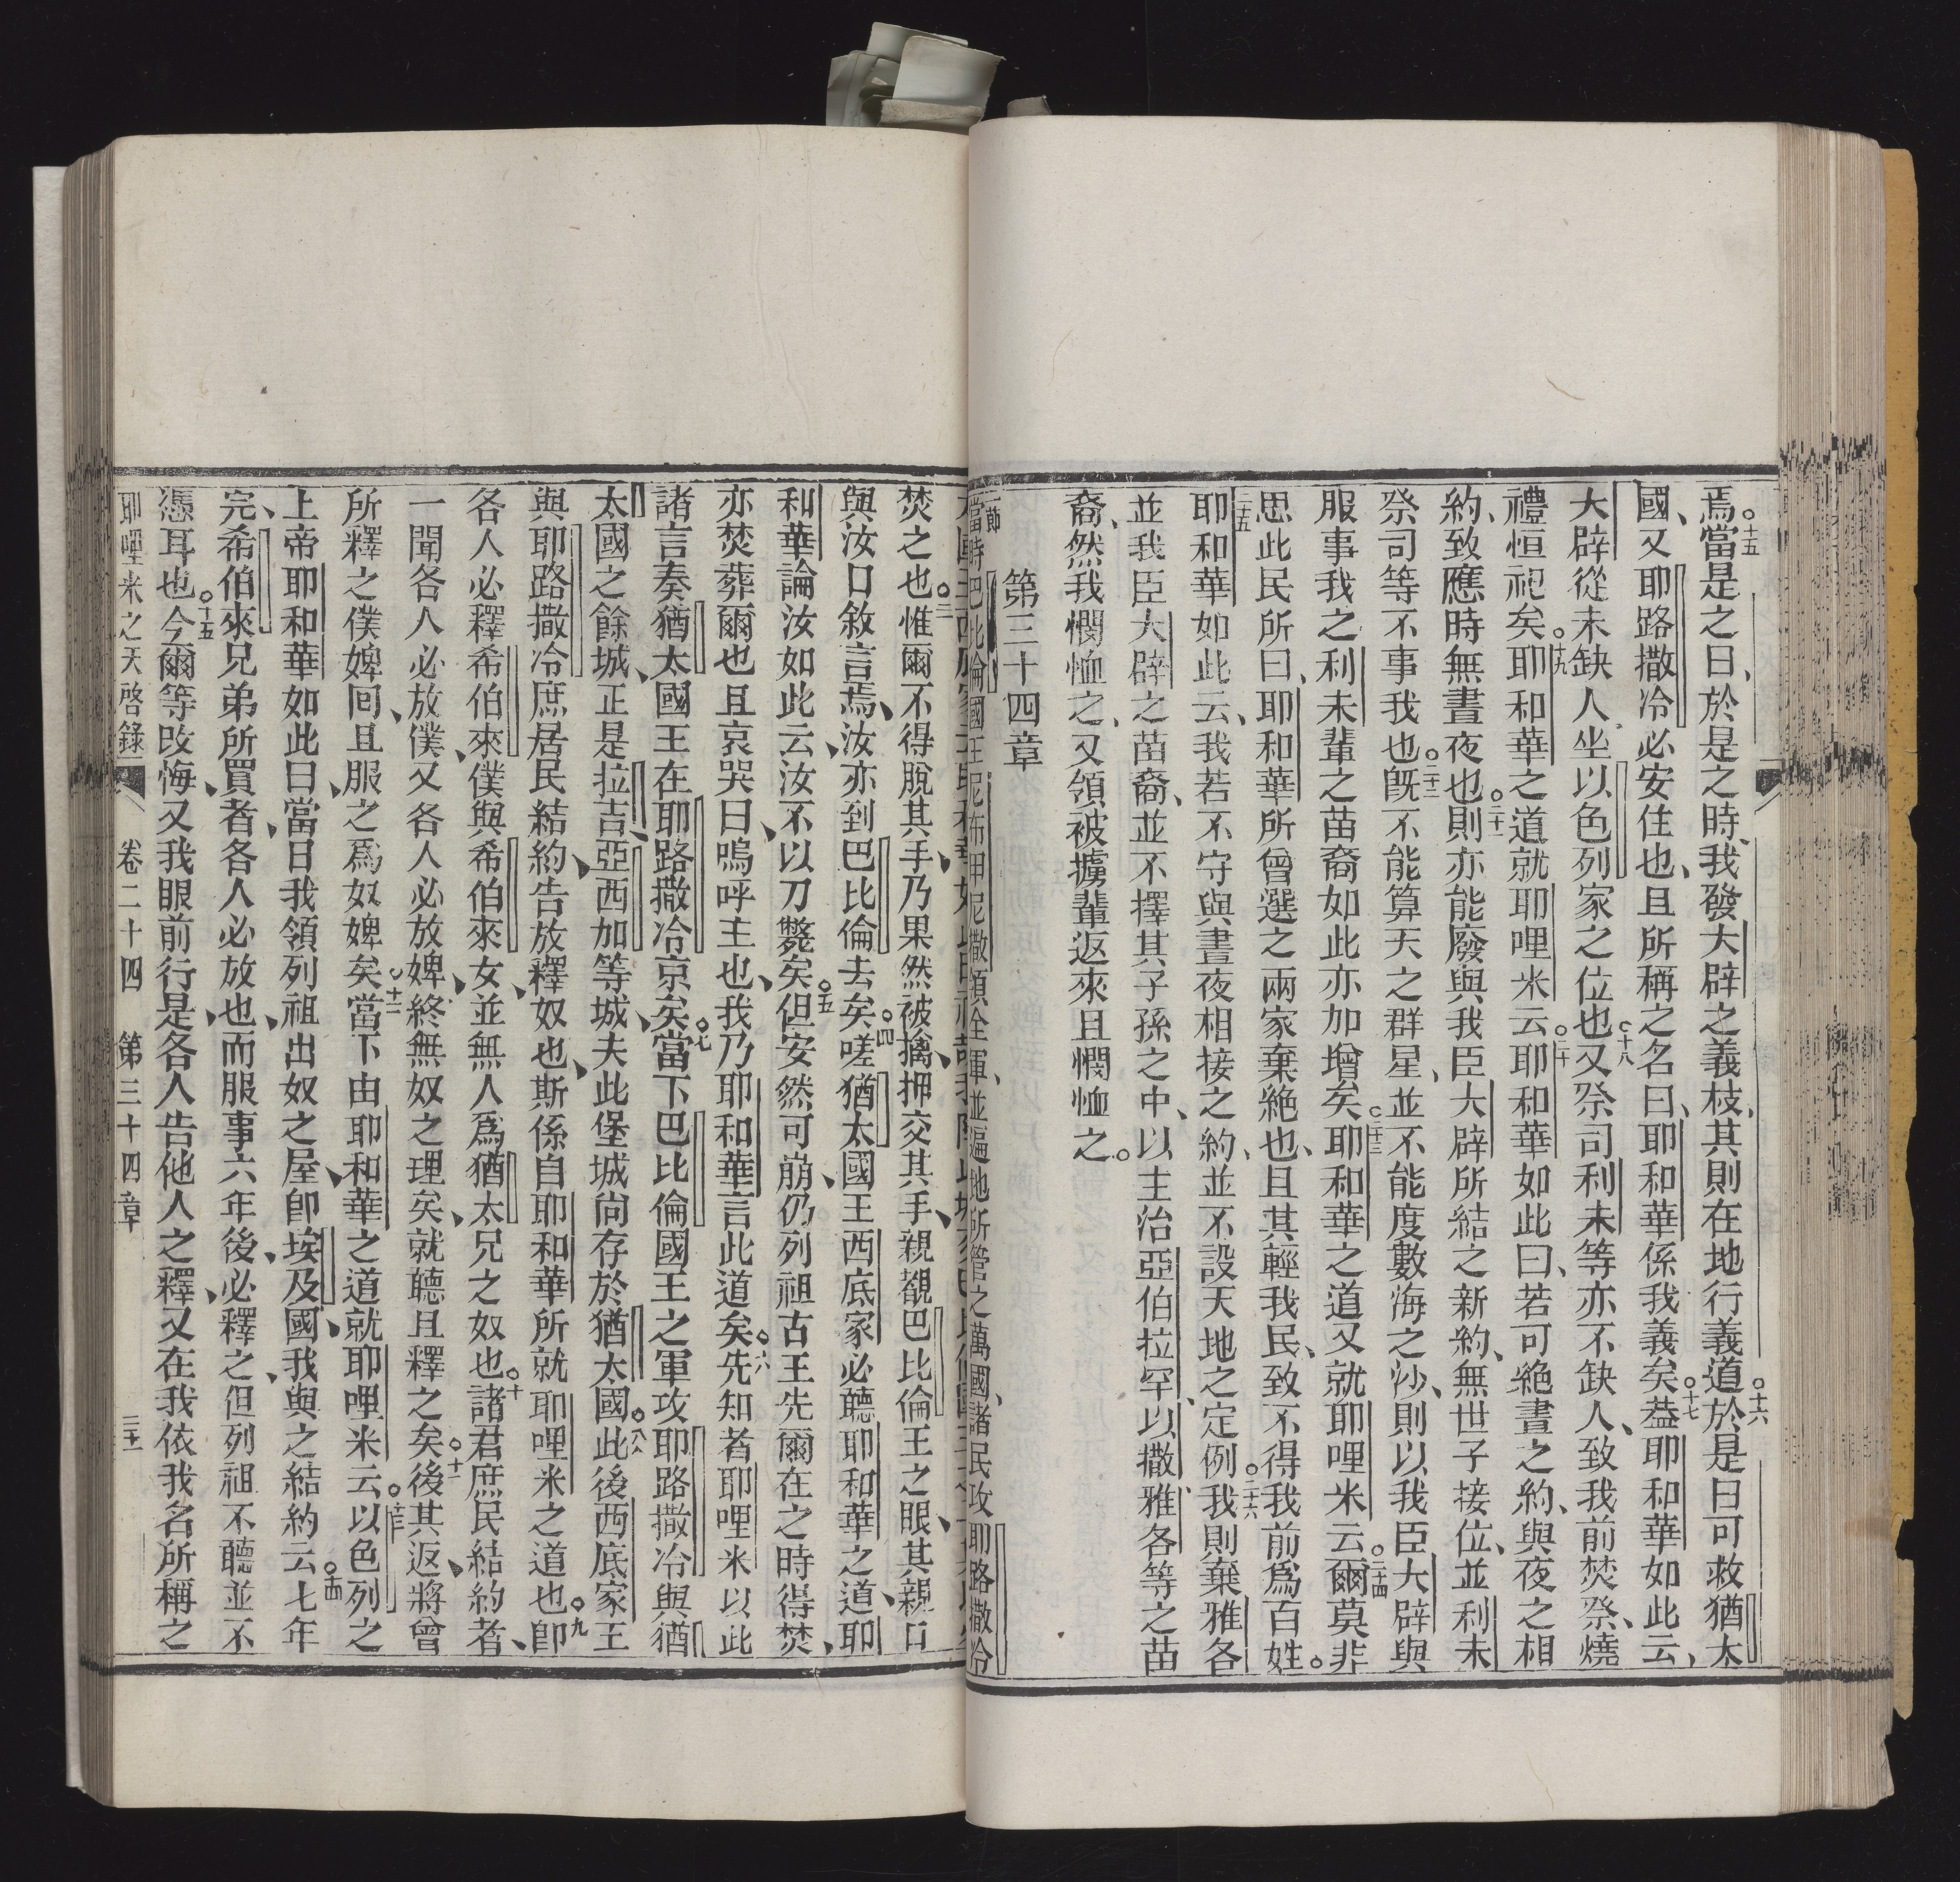 焉○十五當是之日、於是之時、我發大辟之義枝、其則在地行義道○十六於是日可救猶太
國、又耶路撒冷必安住也、且所稱之名曰、耶和華係我義矣○十七蓋耶和華如此云、
大辟從未缺人坐以色列家之位也○十八又祭司利未等亦不缺人、致我前焚祭、燒
禮恒祀矣○十九耶和華之道就耶哩米云○二十耶和華如此曰、若可絕晝之約、與夜之相
約、致應時無晝夜也○二十一則亦能廢與我臣大辟所結之新約、無世子接位、並利未
祭司等不事我也○二十二旣不能算天之群星、並不能度數海之沙、則以我臣大辟與
服事我之利未輩之苗裔如此亦加增矣○二十三耶和華之道又就耶哩米云○二十四爾莫非
思此民所曰、耶和華所曾選之兩家棄絶也、且其輕我民、致不得我前爲百姓。
二十五耶和華如此云、我若不守與晝夜相接之約、並不設天地之定例○二十六我則棄雅各
並我臣大辟之苗裔、並不擇其子孫之中、以主治亞伯拉罕、以撒、雅各等之苗
裔、然我憫恤之、又領被擄輩返來且憫恤之。
第三十四章
一節當時巴比倫國王尼布甲尼撒領全軍、並遍地所管之萬國、諸民攻耶路撒冷
焚之也○三惟爾不得脫其手、乃果然被擒、押交其手、親觀巴比倫王之眼、其親口
與汝口敘言焉、汝亦到巴比倫去矣○四嗟猶太國王西底家必聽耶和華之道、耶
和華論汝如此云、汝不以刀斃矣○五但安然可崩、仍列祖古王先爾在之時得焚、
亦焚葬爾也且哀哭曰、嗚呼主也、我乃耶和華言此道矣○六先知者耶哩米以此
諸言奏猶太國王在耶路撒冷京矣○七當下巴比倫國王之軍攻耶路撒冷與猶
太國之餘城、正是拉吉、亞西加等城、夫此堡城尚存於猶太國○八此後西底家王
與耶路撒冷庶居民結約、告放釋奴也、斯係自耶和華所就耶哩米之道也○九卽
各人必釋希伯來僕與希伯來女、並無人爲猶太兄之奴也○十諸君庶民結約者、
一聞各人必放僕、又各人必放婢、終無奴之理矣、就聽且釋之矣○十一後其返、將曾
所釋之僕婢回、且服之爲奴婢矣○十二當下由耶和華之道就耶哩米云○十三以色列之
上帝耶和華如此曰、當日我領列祖出奴之屋、卽埃及國、我與之結約云○十四七年
完、希伯來兄弟所買者、各人必放也、而服事六年後、必釋之、但列祖不聽並不
憑耳也○十五今爾等改悔、又我眼前行是、各人告他人之釋、又在我依我名所稱之
耶哩米之天啓錄 卷二十四 第三十四章